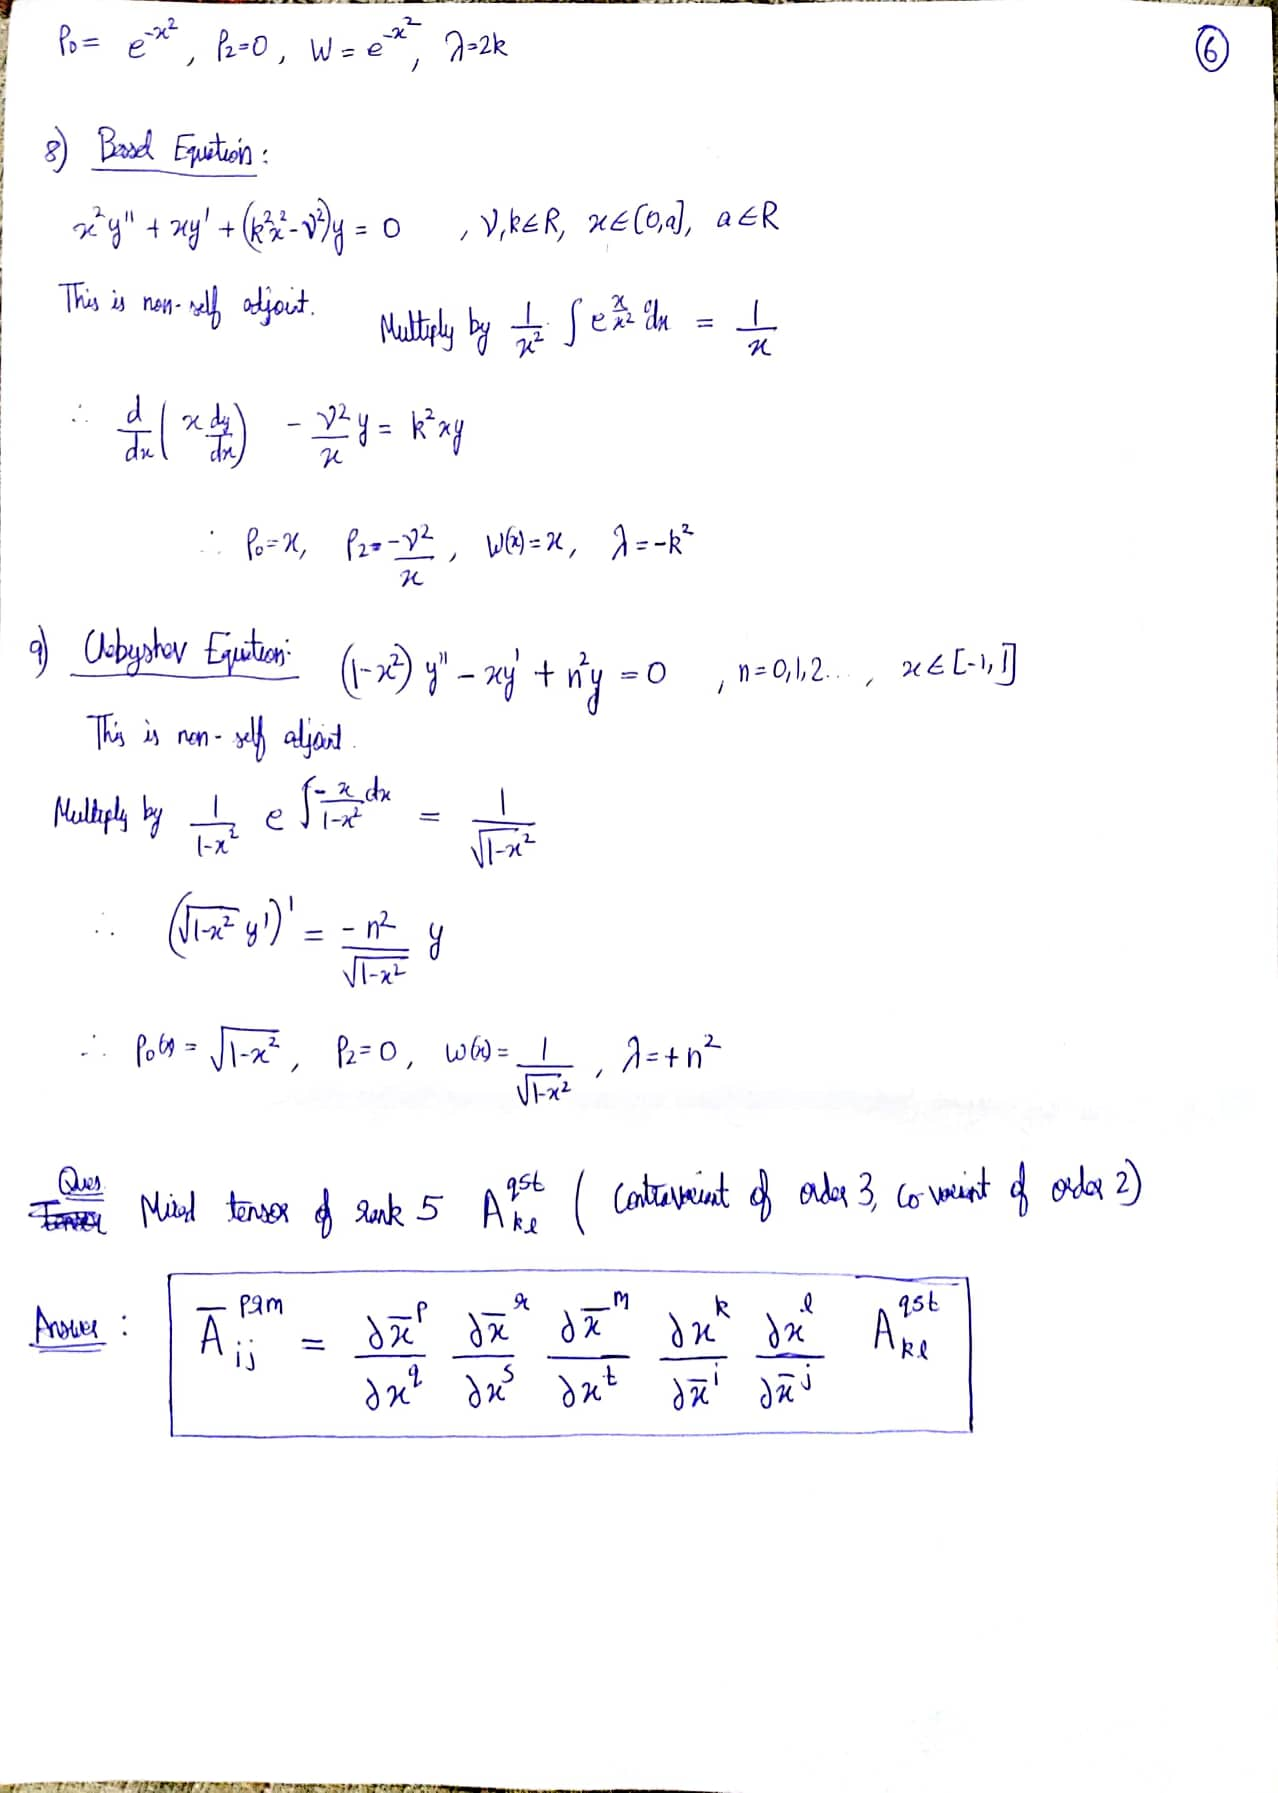 P₀ = e^{-x²}, P₂=0, W = e^{-x²}, λ=2k
⑥
8) Bessel Equation:
x²y'' + xy' + (k²x²-ν²)y = 0 , ν,k∈R, x∈[0,a], a∈R
This is non-self adjoint. Multiply by 1/x² ∫e^{x/x²} dx = 1/x
∴ d/dx (x dy/dx) - ν²/x y = k²xy
∴ P₀=x, P₂=-ν²/x, W(x)=x, λ=-k²
9) Chebyshev Equation: (1-x²) y'' - xy' + n²y = 0 , n=0,1,2..., x∈[-1,1]
This is non-self adjoint.
Multiply by 1/(1-x²) e^{∫-x/(1-x²) dx} = 1/√(1-x²)
∴ (√(1-x²) y')' = -n²/√(1-x²) y
∴ P₀(x) = √(1-x²), P₂=0, w(x) = 1/√(1-x²), λ=+n²
Ques
Tensor Mixed tensor of rank 5 A^{qst}_{kl} ( Contravariant of order 3, co-variant of order 2)
Answer : Ā^{prm}_{ij} = ∂x̄^p/∂x^q ∂x̄^r/∂x^s ∂x̄^m/∂x^t ∂x^k/∂x̄^i ∂x^l/∂x̄^j A^{qst}_{kl}